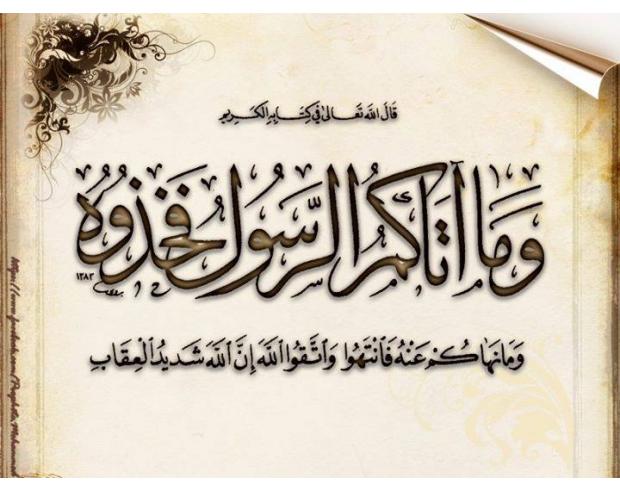 قَالَ اللّٰهُ تَعَالىٰ فِي كِتَابِهِ الكَرِيمِ
وَمَا آتَاكُمُ الرَّسُولُ فَخُذُوهُ
١٣٨٣
وَمَانَهَاكُمْ عَنْهُ فَانْتَهُوا وَاتَّقُوا اللّٰهَ إِنَّ اللّٰهَ شَدِيدُ الْعِقَابِ